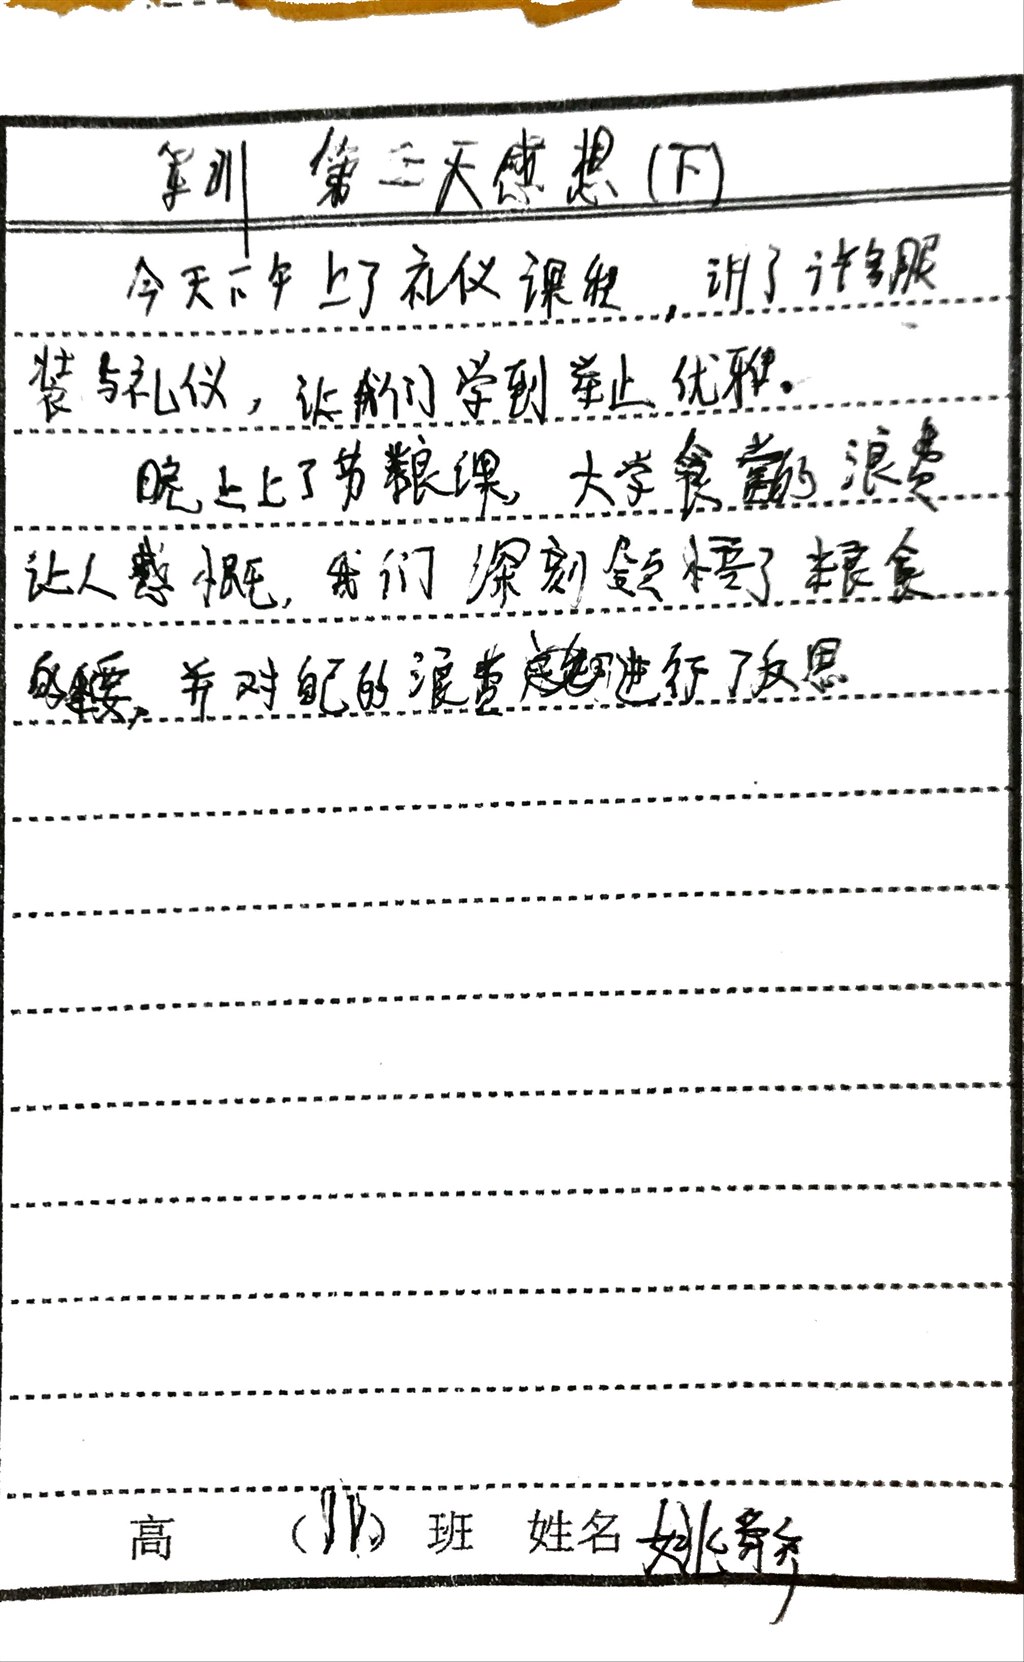 军训 第三天感想(下)
今天下午上了礼仪课程,讲了许多服
装与礼仪,让我们学到举止优雅。
晚上上了节粮课,大学食堂的浪费
让人感慨,我们深刻领悟了粮食
的重要,并对自己的浪费进行了反思
高 (11)班 姓名 姚